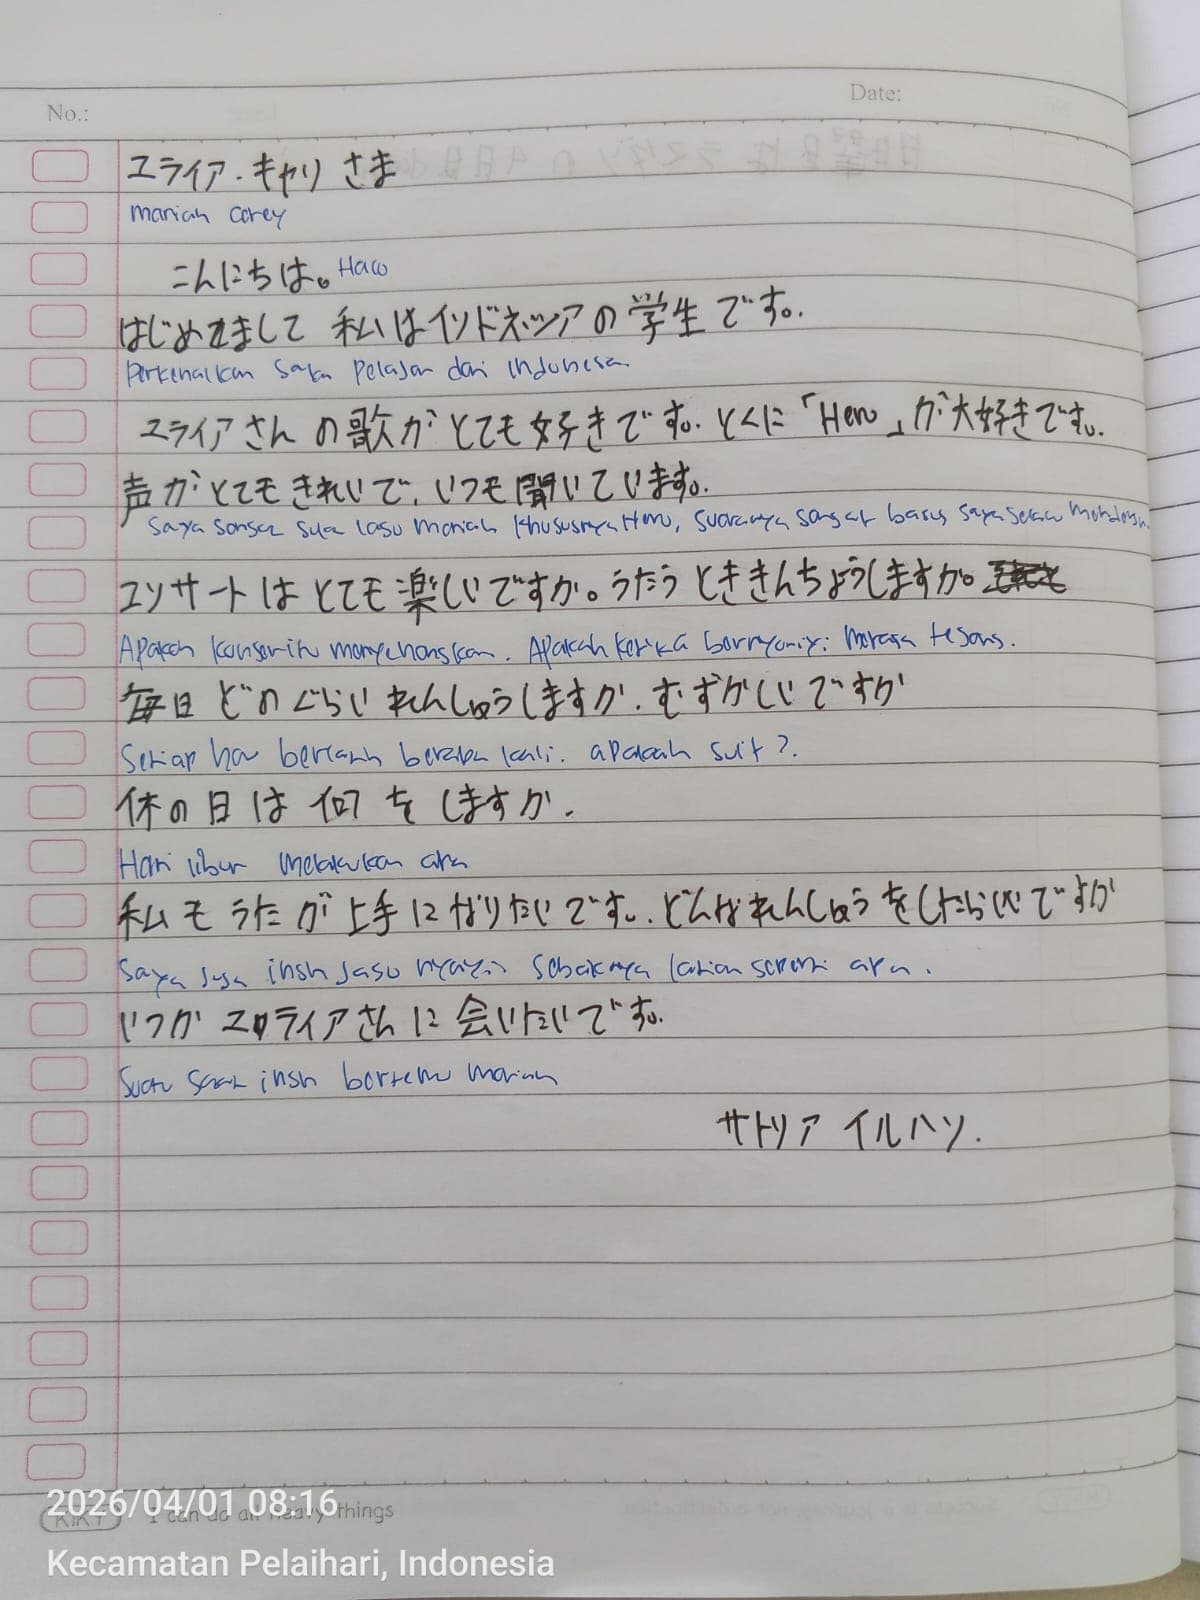 No.:
Date:
ユライア・キャリ さま
mariah carey
こんにちは。Halo
はじめまして 私はインドネシアの学生です。
Perkenalkan saya pelajar dari Indonesia.
ユライアさんの歌がとても好きです。とくに「Hero」が大好きです。
声がとてもきれいで、いつも聞いています。
Saya sangat suka lagu Mariah khususnya Hero, suaranya sangat bagus saya selalu
コンサートはとても楽しいですか。うたうとききんちょうしますか。
Apakah konser itu menyenangkan. Apakah ketika bernyanyi merasa tegang.
毎日どのぐらいれんしゅうしますか。むずかしいですか
Setiap hari berlatih berapa kali. apakah sulit?.
休の日は何をしますか.
Hari libur melakukan apa
私もうたが上手になりたいです。どんなれんしゅうをしたらいいですか
Saya juga insh jago nyanyi sebaiknya latihan seperti apa.
いつかユライアさんに会いたいです。
Suatu saat insh bertemu mariah
サトリア イルハン.
KIKY I can do all heavy things
2026/04/01 08:16
Kecamatan Pelaihari, Indonesia